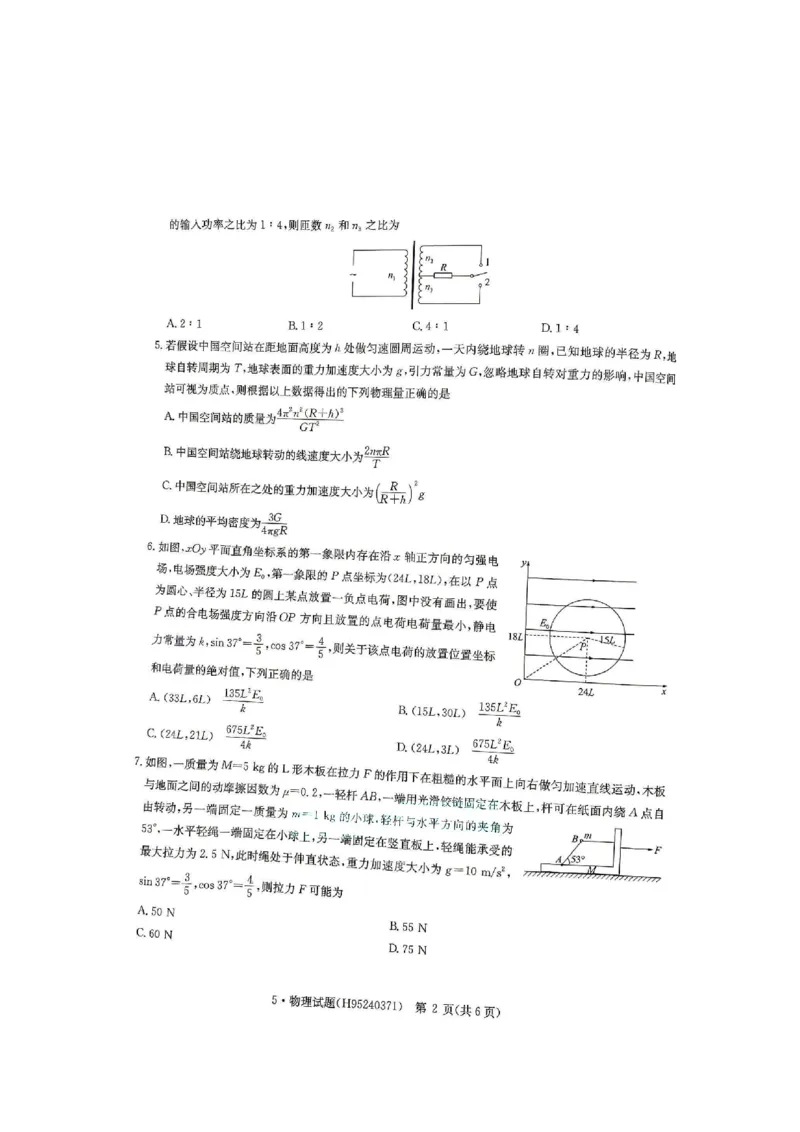 的输入功率之比为1∶4,则匝数n₂和n₃之比为
~
n₁
n₃
R
n₂
1
2
A.2∶1 B.1∶2 C.4∶1 D.1∶4
5.若假设中国空间站在距地面高度为h处做匀速圆周运动,一天内绕地球转n圈,已知地球的半径为R,地
球自转周期为T,地球表面的重力加速度大小为g,引力常量为G,忽略地球自转对重力的影响,中国空间
站可视为质点,则根据以上数据得出的下列物理量正确的是
A.中国空间站的质量为4π²n²(R+h)³/GT²
B.中国空间站绕地球转动的线速度大小为2nπR/T
C.中国空间站所在之处的重力加速度大小为(R/(R+h))²g
D.地球的平均密度为3G/4πgR
6.如图,xOy平面直角坐标系的第一象限内存在沿x轴正方向的匀强电
场,电场强度大小为E₀,第一象限的P点坐标为(24L,18L),在以P点
为圆心、半径为15L的圆上某点放置一负点电荷,图中没有画出,要使
P点的合电场强度方向沿OP方向且放置的点电荷电荷量最小,静电
力常量为k,sin37°=3/5,cos37°=4/5,则关于该点电荷的放置位置坐标
和电荷量的绝对值,下列正确的是
y
E₀
18L
15L
P
O
24L
x
A.(33L,6L) 135L²E₀/k
B.(15L,30L) 135L²E₀/k
C.(24L,21L) 675L²E₀/4k
D.(24L,3L) 675L²E₀/4k
7.如图,一质量为M=5 kg的L形木板在拉力F的作用下在粗糙的水平面上向右做匀加速直线运动,木板
与地面之间的动摩擦因数为μ=0.2,一轻杆AB,一端用光滑铰链固定在木板上,杆可在纸面内绕A点自
由转动,另一端固定一质量为m=1 kg的小球,轻杆与水平方向的夹角为
53°,一水平轻绳一端固定在小球上,另一端固定在竖直板上,轻绳能承受的
最大拉力为2.5 N,此时绳处于伸直状态,重力加速度大小为g=10 m/s²,
sin37°=3/5,cos37°=4/5,则拉力F可能为
B
m
F
A
53°
M
A.50 N
B.55 N
C.60 N
D.75 N
5·物理试题(H95240371) 第2页(共6页)